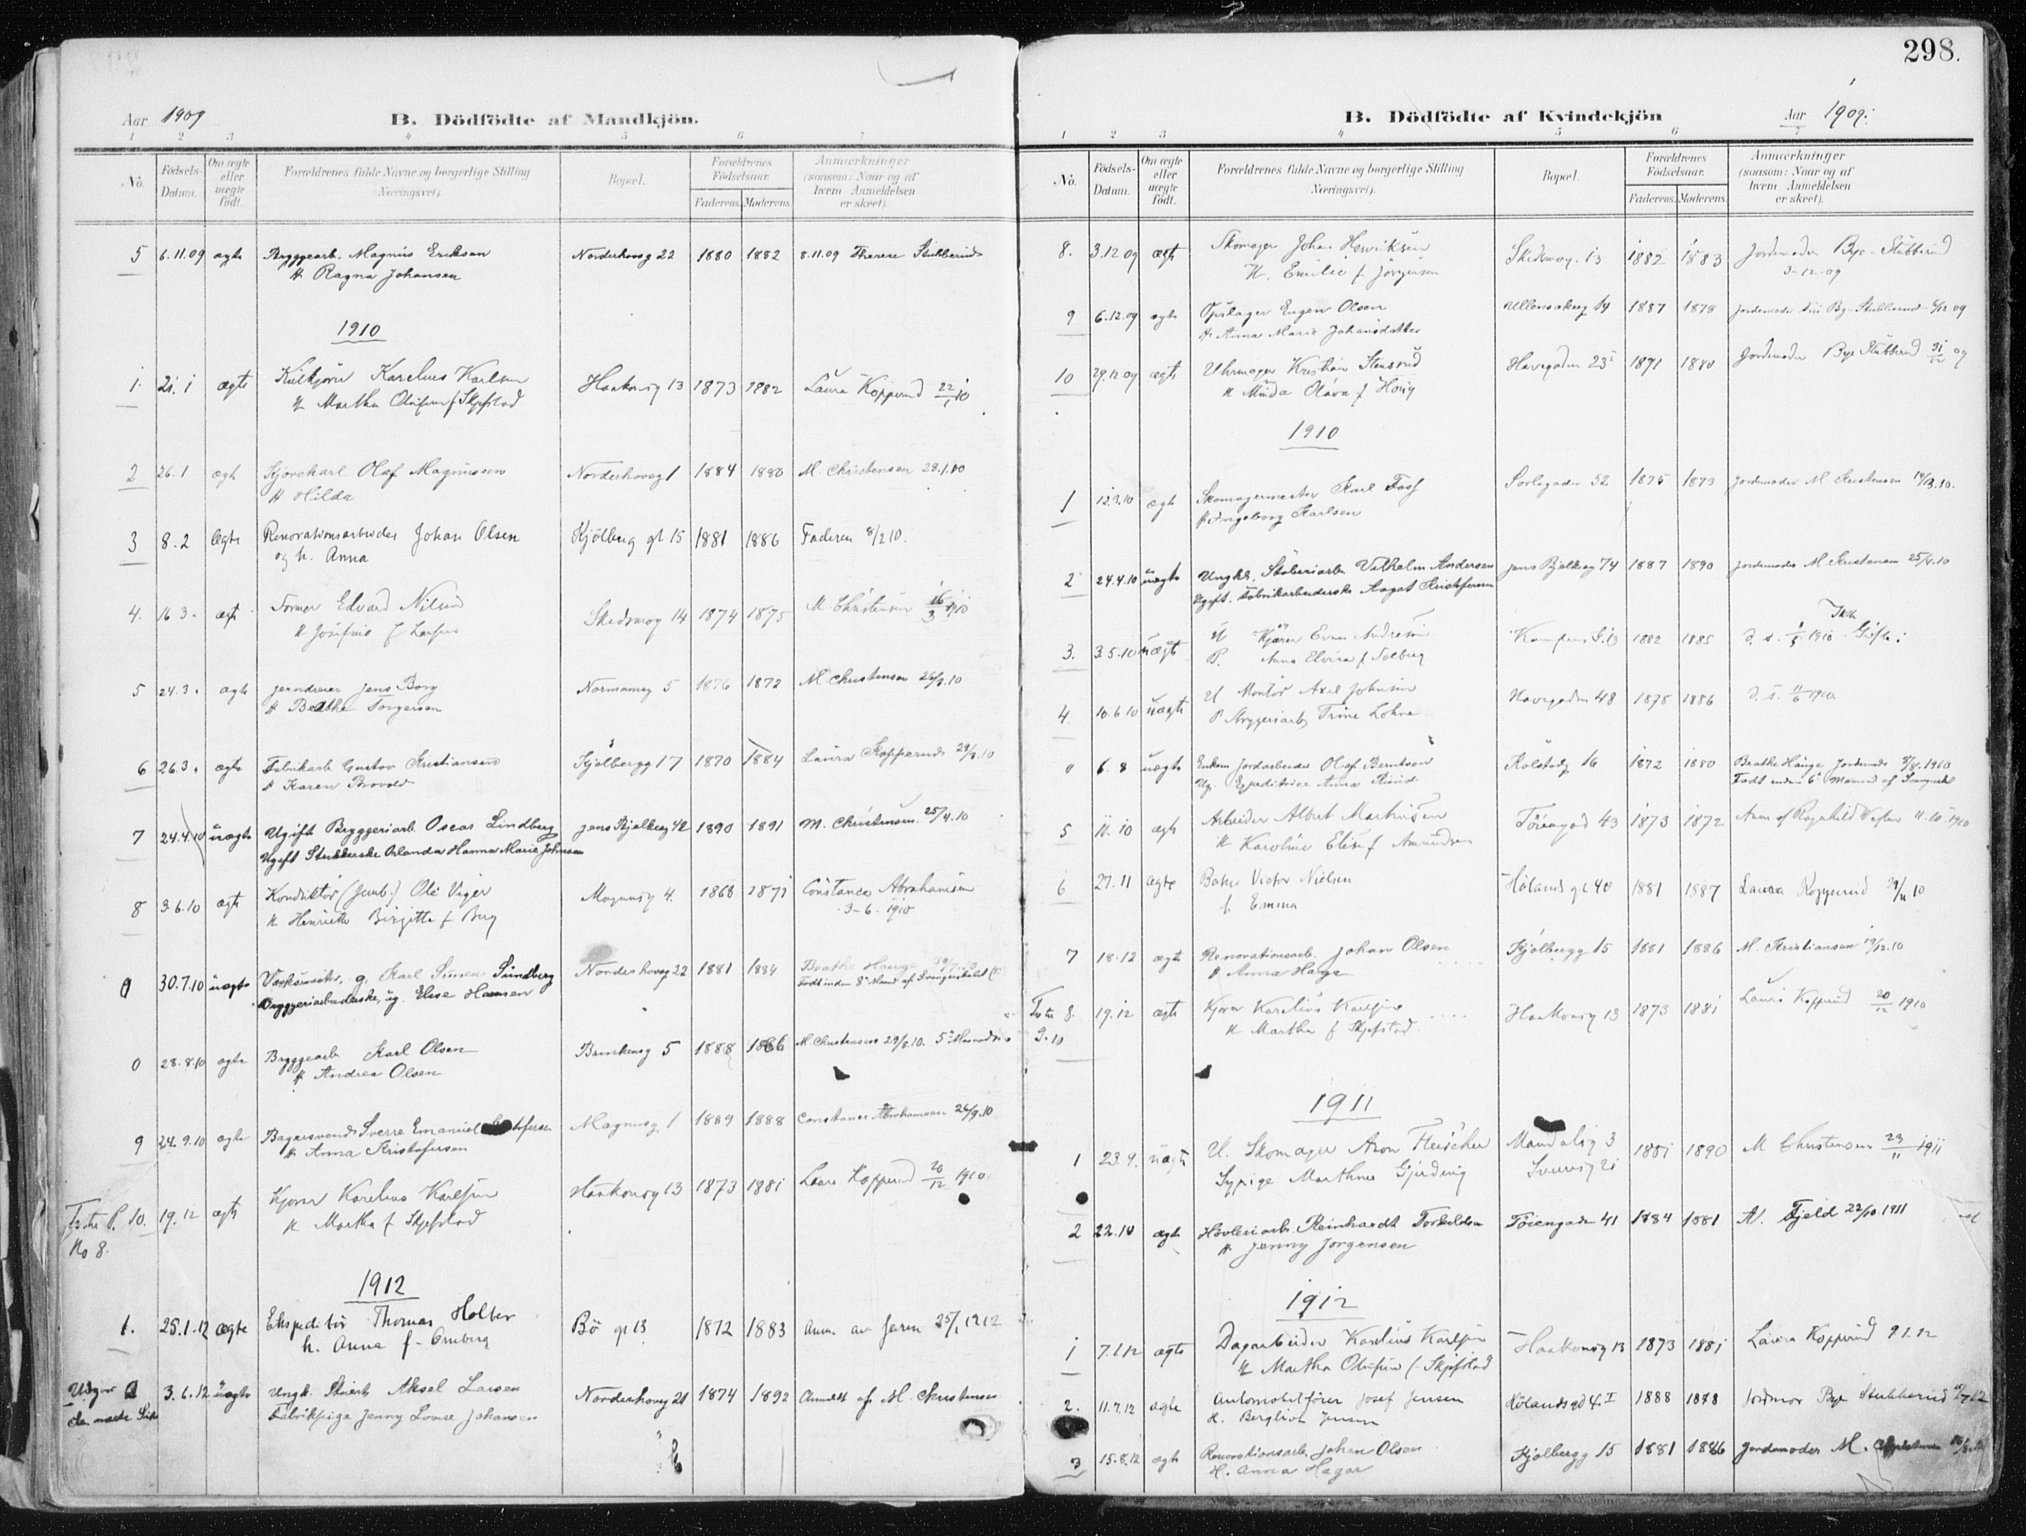 298.
Aar 1909
B. Dödfödte af Mandkjön.
1 2 3 4 5 6 7
No.
Födsels-Datum.
Om ægte eller uægte födt.
Forældrenes fulde Navne og borgerlige Stilling (Næringsvei).
Bopæl.
Forældrenes Födselsaar.
Faderens. Moderens.
Anmærkninger (saasom: Naar og af hvem Anmeldelsen er skeet).
5 6.11.09 ægte Bryggearb. Magnus Eriksen Norderhovsg 22 1880 1882 8.11.09 Therese Stubberud
H Ragna Johansen
1910
1. 21.1 ægte Kulkjører Karelius Karlsen Haakonsg 13 1873 1882 Laura Kopperud 22/1 10
H Martha Olufsen f Skjefstad
2 26.1 ægte Kjørekarl Olaf Magnussen Norderhovsg 1 1884 1880 M. Christensen 28.1.10
H Hilda
3 8.2 ægte Renovationsarbeider Johan Olsen Kjölberg gt 15 1881 1886 Faderen 8/2 10.
og h. Anna
4. 16 3. ægte Former Edvard Nilsen Skedsmog 14 1874 1875 M Christensen 16/3 1910
H Josefine f Larsen
5 24.3. ægte Jerndreier Jens Borg Normannsg 5 1876 1872 M. Christensen 26/3.10
H Beathe Torgersen
6 26.3. ægte Fabrikarb Gustav Kristiansen Kjölbergg 17 1870 1884 Laura Kopperud 29/3.10
H Karen Brovold
7 24.4.10 uægte Ugift Bryggeriarb. Oscar Lindberg Jens Bjelkesg 42 1890 1891 M. Christensen 25/4.10
Ugift Strikkerske Orlanda Hanna Marie Johnsen
8 3.6.10 ægte Konduktör (Jernb.) Ole Viger Magnusg 4. 1868 1871 Constance Abrahamsen
H Henriette Birgitte f Berg 3-6-1910
30.7.10 uægte g. Karl Simen Sundberg Norderhovsg 22 1881 1884 Beathe Hauge
Bryggeriarbeiderske, ug. Elise Hansen Födt inden 8de Maaned af Svangerskabet
0 28.8.10 ægte Bryggearb Karl Olsen Brinkensg 5 1888 1866 M Christensen 29/8.10.
H Andrea Olsen
9 24.9.10 ægte Bagersvend Sverre Emanuel Magnusg 1 1889 1888 Constance Abrahamsen 26/9.10
H Anna Kristofersen
10. 19.12 ægte Kjører Karelius Karlsen Haakonsg 13 1873 1881 Laura Kopperud 20/12 1910
No 8. H Martha f Skjefstad
1912
1. 25.1.12 ægte Ekspeditør Thomas Holter Bö gt 13 1872 1883 Anm. av faren 25/1 1912
h. Anna f. Omberg
3.6.12 uægte Ungk. Aksel Larsen Norderhovsg 21 1874 1892 Anmeldt af M. Christensen
Fabrikpige Jenny Lovise Johansen
B. Dödfödte af Kvindekjön
Aar 1909.
1 2 3 4 5 6 7
No.
Födsels-Datum.
Om ægte eller uægte födt.
Forældrenes fulde Navne og borgerlige Stilling (Næringsvei).
Bopæl.
Forældrenes Födselsaar.
Faderens. Moderens.
Anmærkninger (saasom: Naar og af hvem Anmeldelsen er skeet).
8. 3.12 09 ægte Skomager Johan Henriksen Skedsmog. 13 1882 1883 Jordemoder Bye-Stubberud
H. Emilie f Jörgensen 3-12-09
9 6.12.09 ægte Eugen Olsen Ullensakerg 14 1887 1878 Jordemoder By-Stubberud 6/12 09
H. Anna Marie Johansdatter
10 29.12 09 ægte Uhrmager Kristian Stensrud Havegaden 23 1871 1880 Jordemoder Bye Stubberud 31/12 09
H Minda Olava f Honig
1910
1 12.3.10 ægte Skomagermester Karl Foss Sorlegaden 52 1875 1873 Jordemoder M Kristensen 14/3.10.
H Ingeborg Karlsen
2 24.4.10 uægte Ungkl. Stöberiarb Vilhelm Andersen Jens Bjelkesg 74 1887 1890 Jordemoder M. Kristensen 25/4.10
Ugift. Fabrikarbeiderske Aagot Kristofersen
3. 3.5.10 uægte U Kjører Even Andresen Kampens G. 13 1882 1885 D. S. 1910
P. Anna Elvira f Solberg
4. 10.6 10 uægte U Montör Axel Johnsen Havegaden 48 1878 1886 D. S. 11/6 1910
P Bryggeriarb Trine Lohne
6.8 uægte Enkem Jordarbeider Olaf Berntsen Kolstadg 16 1872 1880 Beathe Hauge Jordemoder 8/8.1910
Ug. Expeditrice Anna Ruud Födt inden 6te Maaned af Svangersk
5 11.10 ægte Arbeider Albert Martinsen Töiengad 43 1873 1872 Anm af Ragnhild 11.10.1910
H Karoline Elise f Amundsen
6 27.11 ægte Baker Victor Nielsen Hölands gt 40 1881 1887 Laura Kopperud 29/11 10
h Emma
7 18.12 ægte Renovationsarb. Johan Olsen Kjölbergg 15 1881 1886 M. Kristiansen 19/12.10
H Anna Hage
8. 19.12 ægte Kjører Karelius Karlsen Haakonsg 13 1873 1881 Laura Kopperud 20/12 1910
H Martha f Skjefstad
1911
1 23.9. uægte U. Skomager Aron Fleischer Mandalsg 3 1881 1890 M Christensen 23/11 1911
Sypige Marthine Gjerding Sverresg 21
2 22.10 ægte Hövleriarb. Reinhardt Torkildsen Töiengaden 41 1884 1881 N. Fjeld 22/10.1911
H Jenny Jorgensen
1912
1 7.1.12 ægte Dagarbeider Karelius Karlsen Haakonsg 13 1873 1881 Laura Kopperud 9.1.12
H Martha Olufsen f. Skjefstad
2. 11.7.12 ægte Automobilfører Josef Jensen Hölandsgd 4.I 1888 1878 Jordmor Bye Stubberud
H. Bergliot Jensen
3 15.8.12 ægte Renovationsarb. Johan Olsen Kjölbergg 15 1881 1886 Jordemoder M. Christensen
H. Anna Hagar